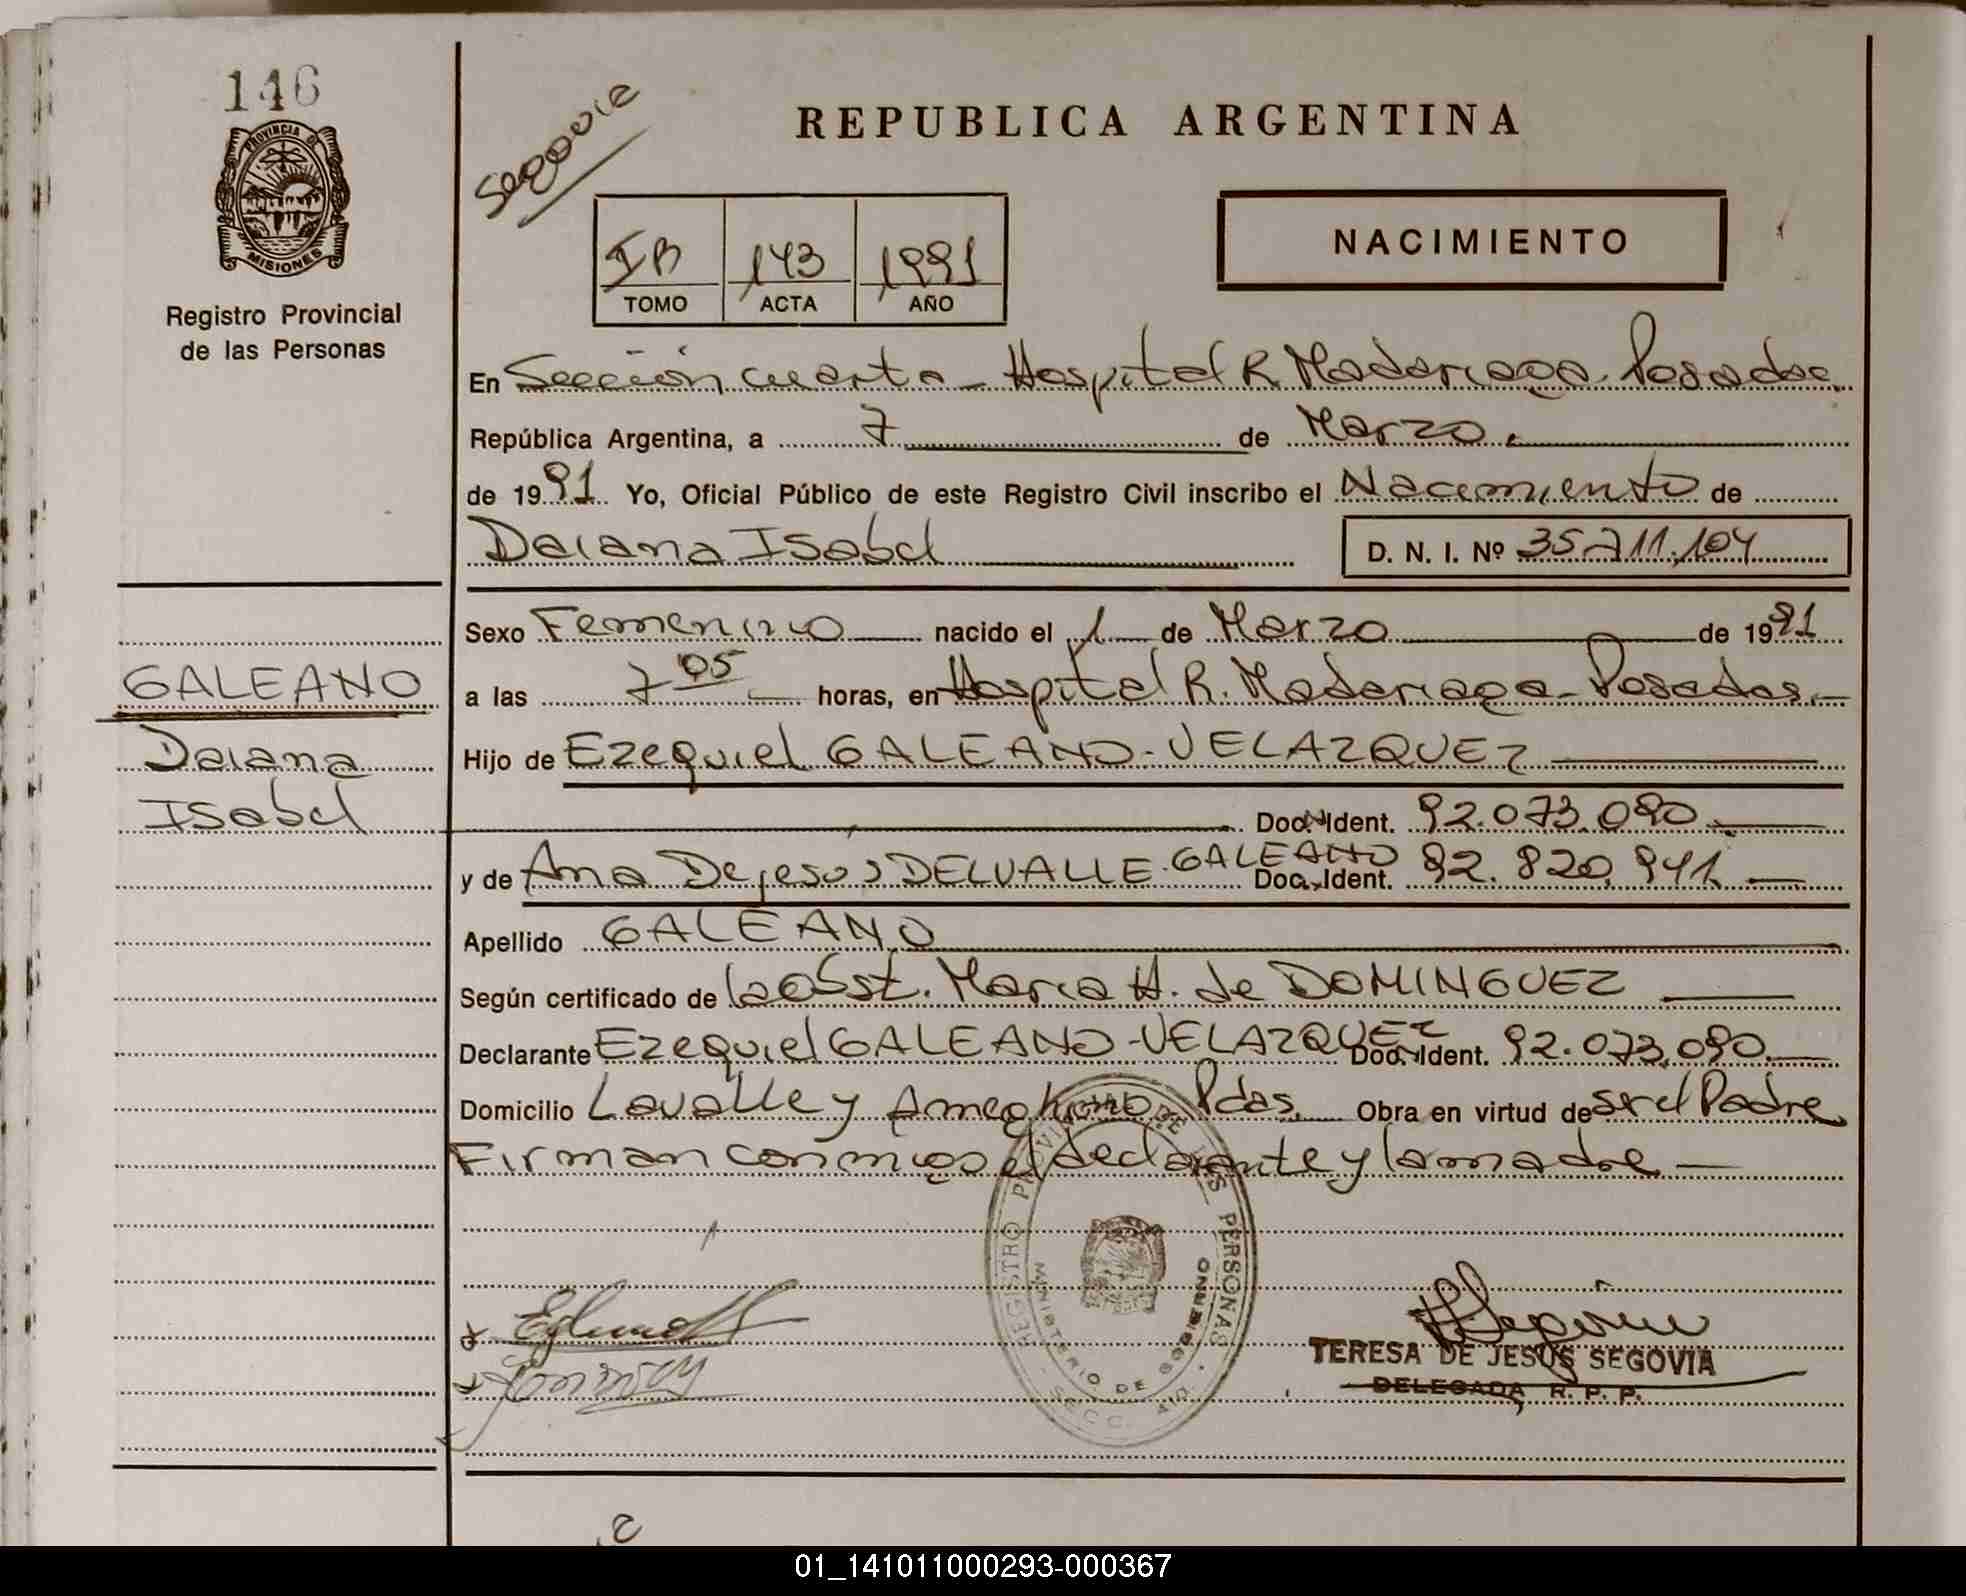 146
PROVINCIA DE
MISIONES
Registro Provincial
de las Personas
Segovia
REPUBLICA ARGENTINA
NACIMIENTO
IB 143 1991
TOMO ACTA AÑO
En Sección cuarta - Hospital R. Madariaga - Posadas
República Argentina, a 7 de Marzo
de 1991 Yo, Oficial Público de este Registro Civil inscribo el Nacimiento de
Daiana Isabel D. N. I. Nº 35.211.104
Sexo Femenino nacido el 1 de Marzo de 1991
GALEANO
a las 7 05 horas, en Hospital R. Madariaga - Posadas.
Daiana
Hijo de Ezequiel GALEANO - VELAZQUEZ
Isabel
Doc. Ident. 92.073.090
y de Ana Dejesus DELVALLE - GALEANO Doc. Ident. 92.820.941
Apellido GALEANO
Según certificado de la obst. Maria H. de DOMINGUEZ
Declarante Ezequiel GALEANO - VELAZQUEZ Doc. Ident. 92.073.090
Domicilio Lavalle y Ameghino Pdas. Obra en virtud de ser el Padre
Firman conmigo el declarante y la madre
REGISTRO PROVINCIAL DE LAS PERSONAS
MINISTERIO DE GOBIERNO
SECC. 4TA
TERESA DE JESUS SEGOVIA
DELEGADA R. P. P.
01_141011000293-000367